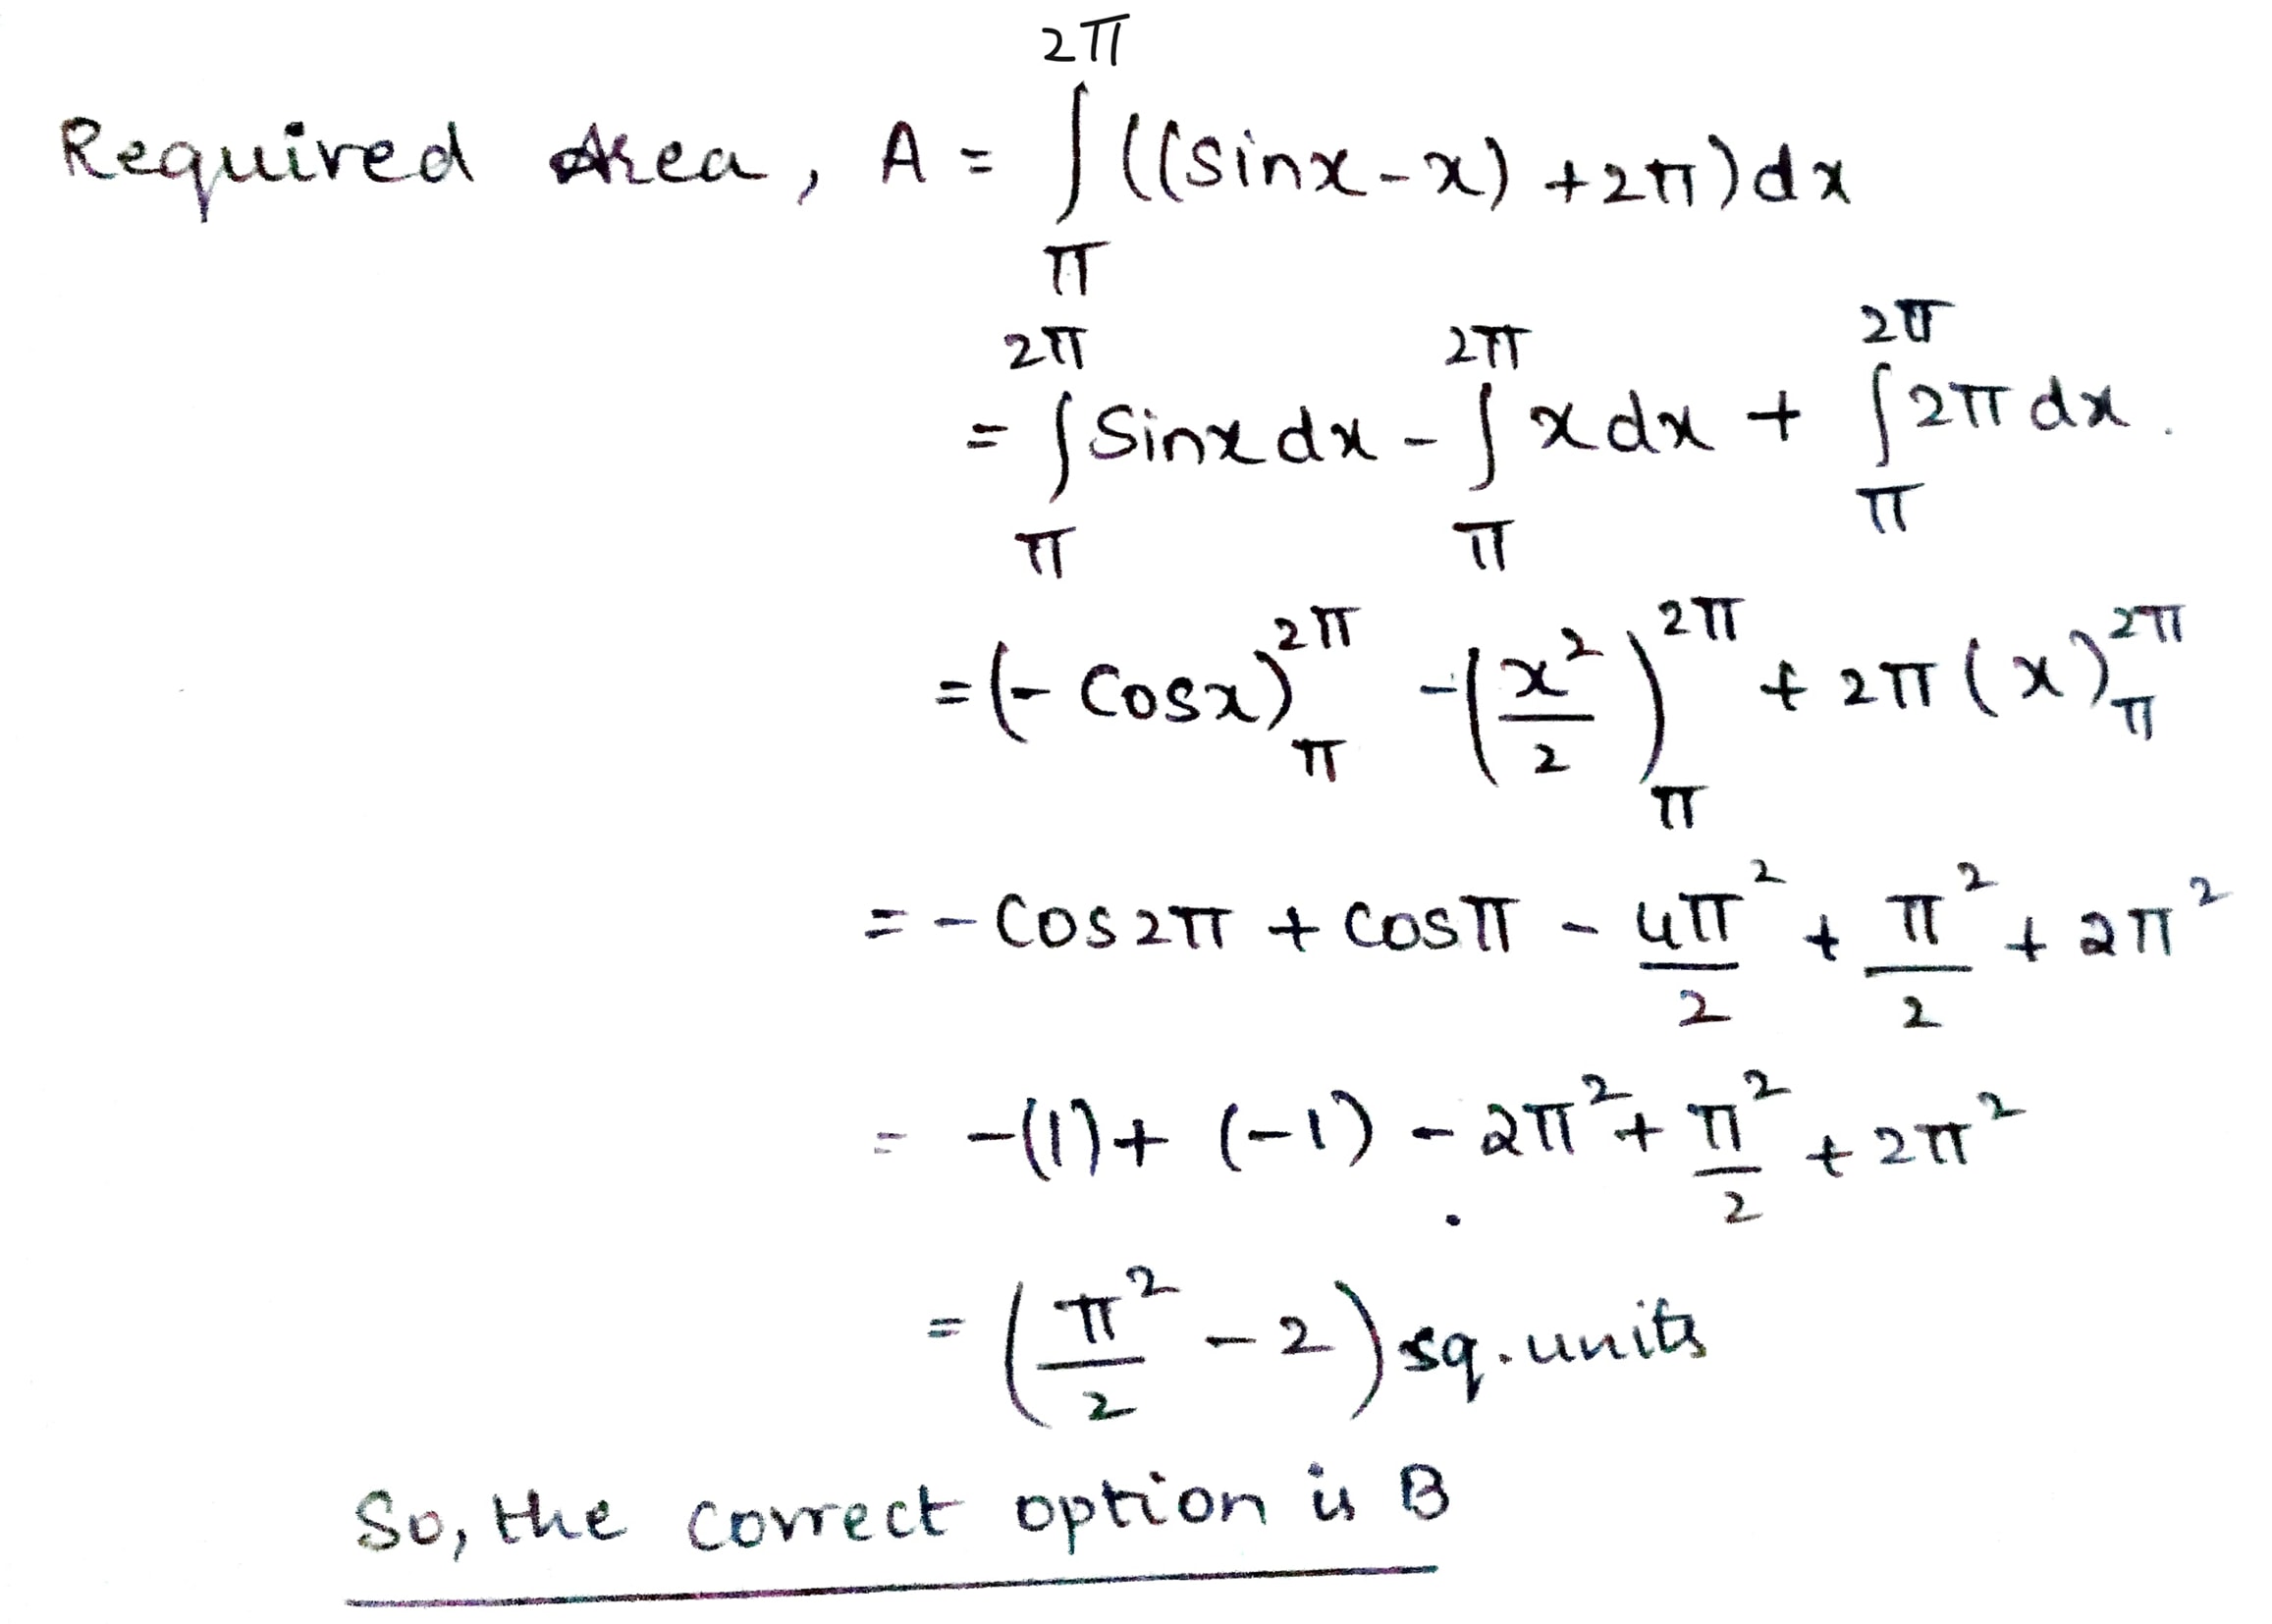 Required area, A = ∫_π^{2π} ((sinx - x) + 2π) dx
= ∫_π^{2π} Sinx dx - ∫_π^{2π} x dx + ∫_π^{2π} 2π dx.
= (- Cosx)_π^{2π} - (x²/2)_π^{2π} + 2π (x)_π^{2π}
= - Cos2π + Cosπ - 4π²/2 + π²/2 + 2π²
= -(1) + (-1) - 2π² + π²/2 + 2π²
= (π²/2 - 2) sq. units
So, the correct option is B